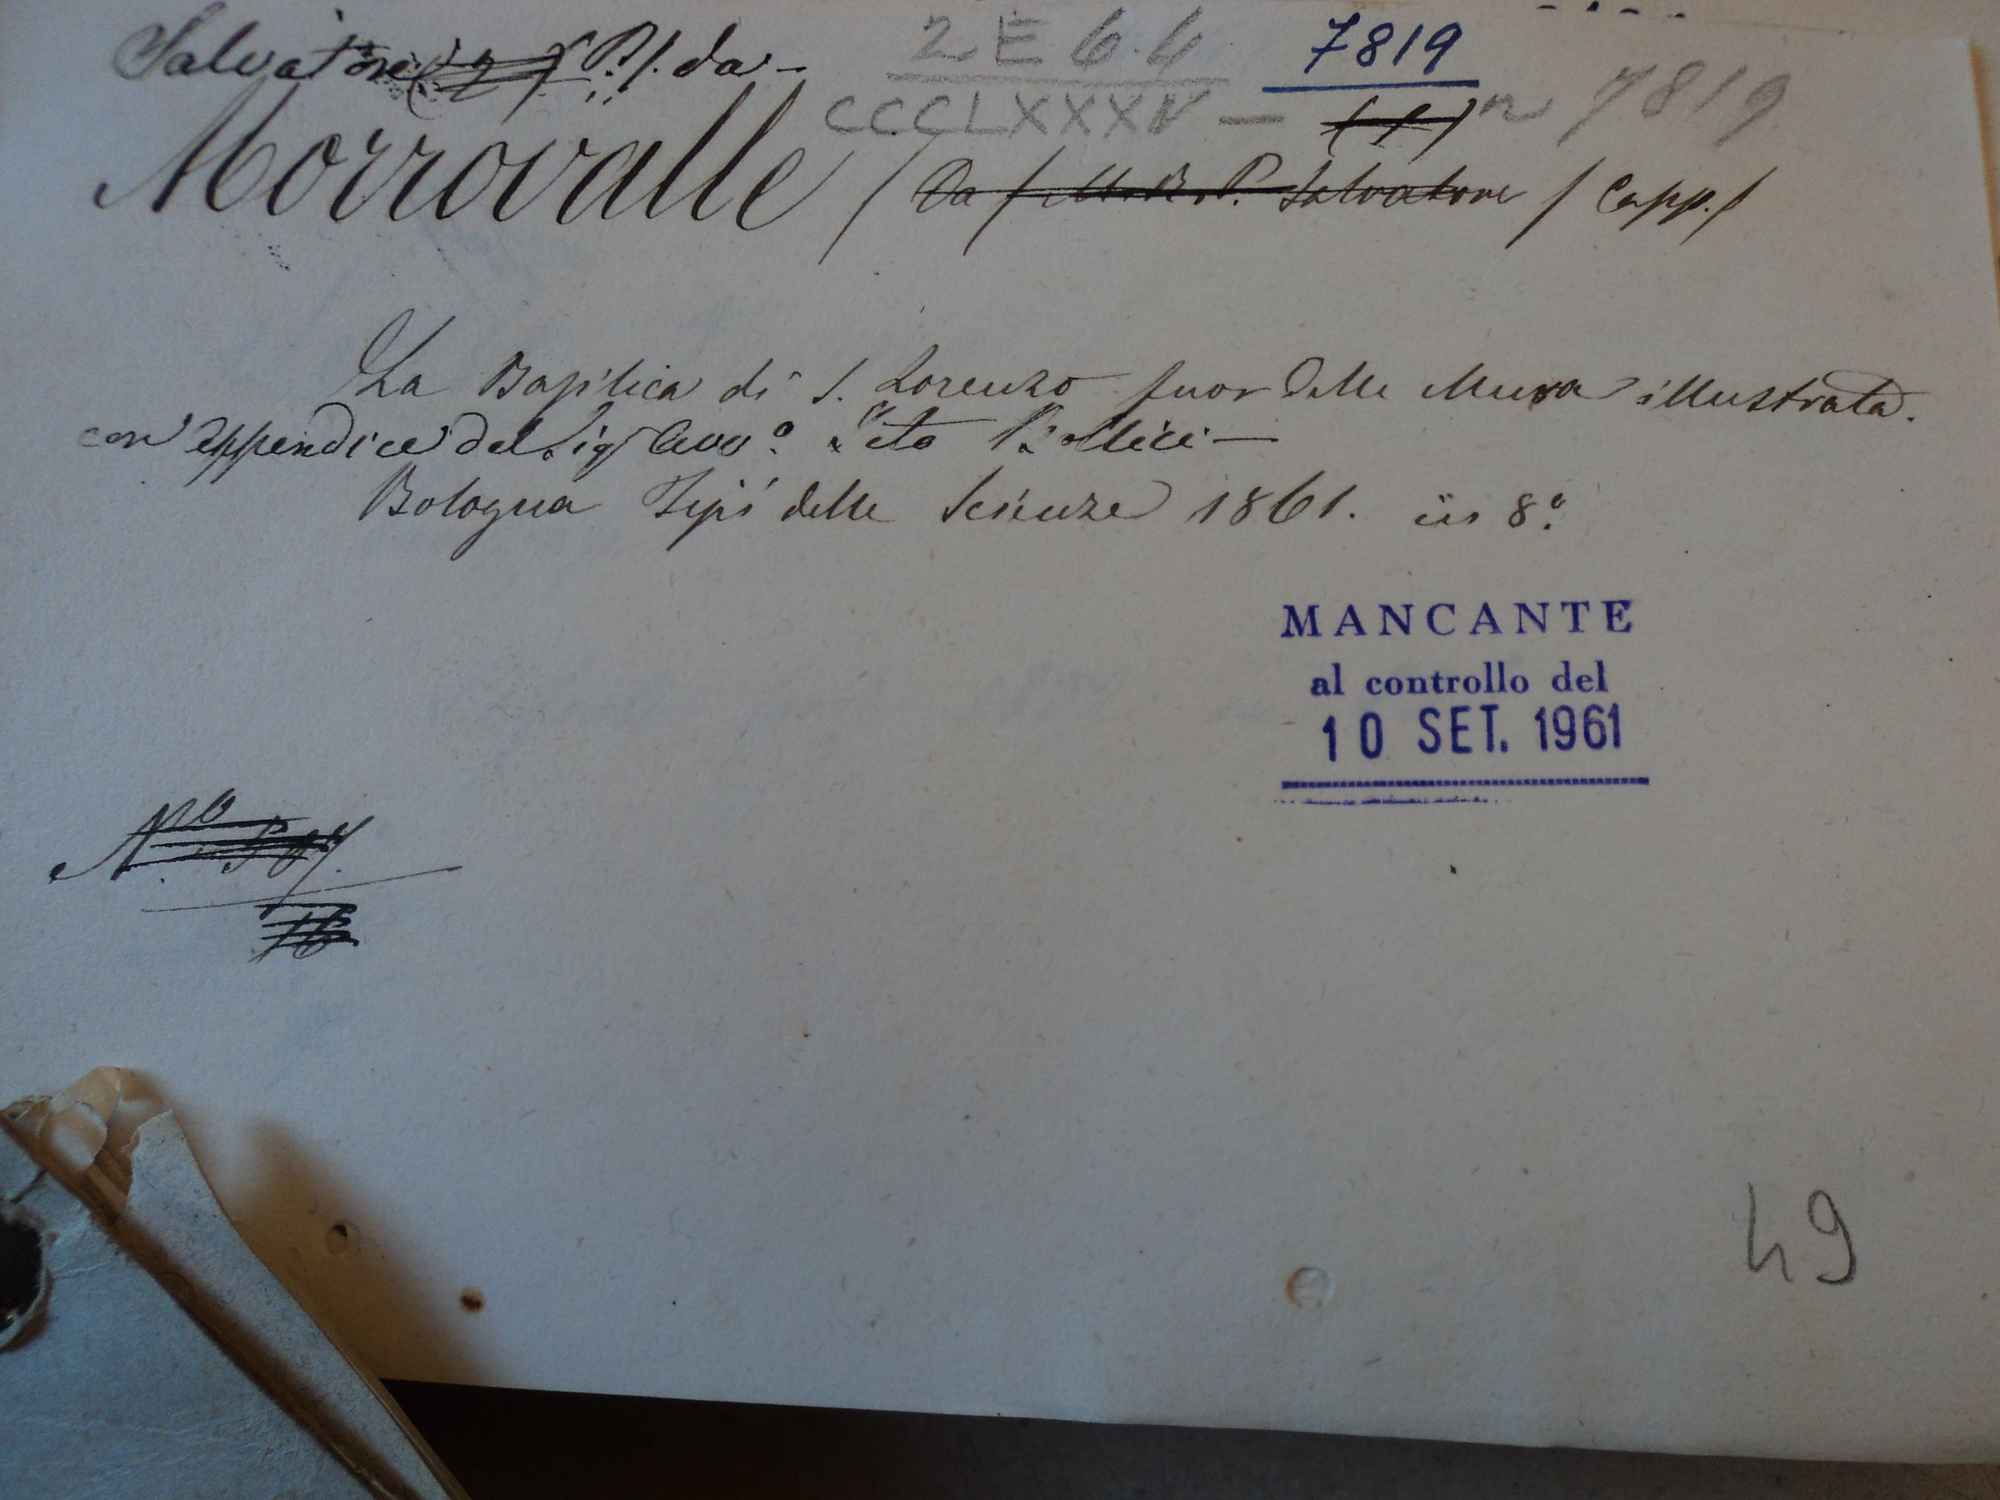 Salvatore P. da - 2 E 6.4 7819
CCCLXXXIV — n 7819
Morrovalle / Da Salvatore / Capp. /
La Basilica di S. Lorenzo fuor delle Mura illustrata.
con appendice del Sig Avv.º Tito Bollici —
Bologna Tipi delle Scienze 1861. in 8.º
MANCANTE
al controllo del
10 SET. 1961
Nº
16
49